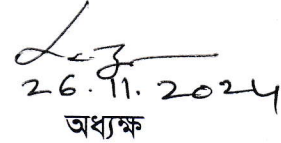 26.11.2024
অধ্যক্ষ